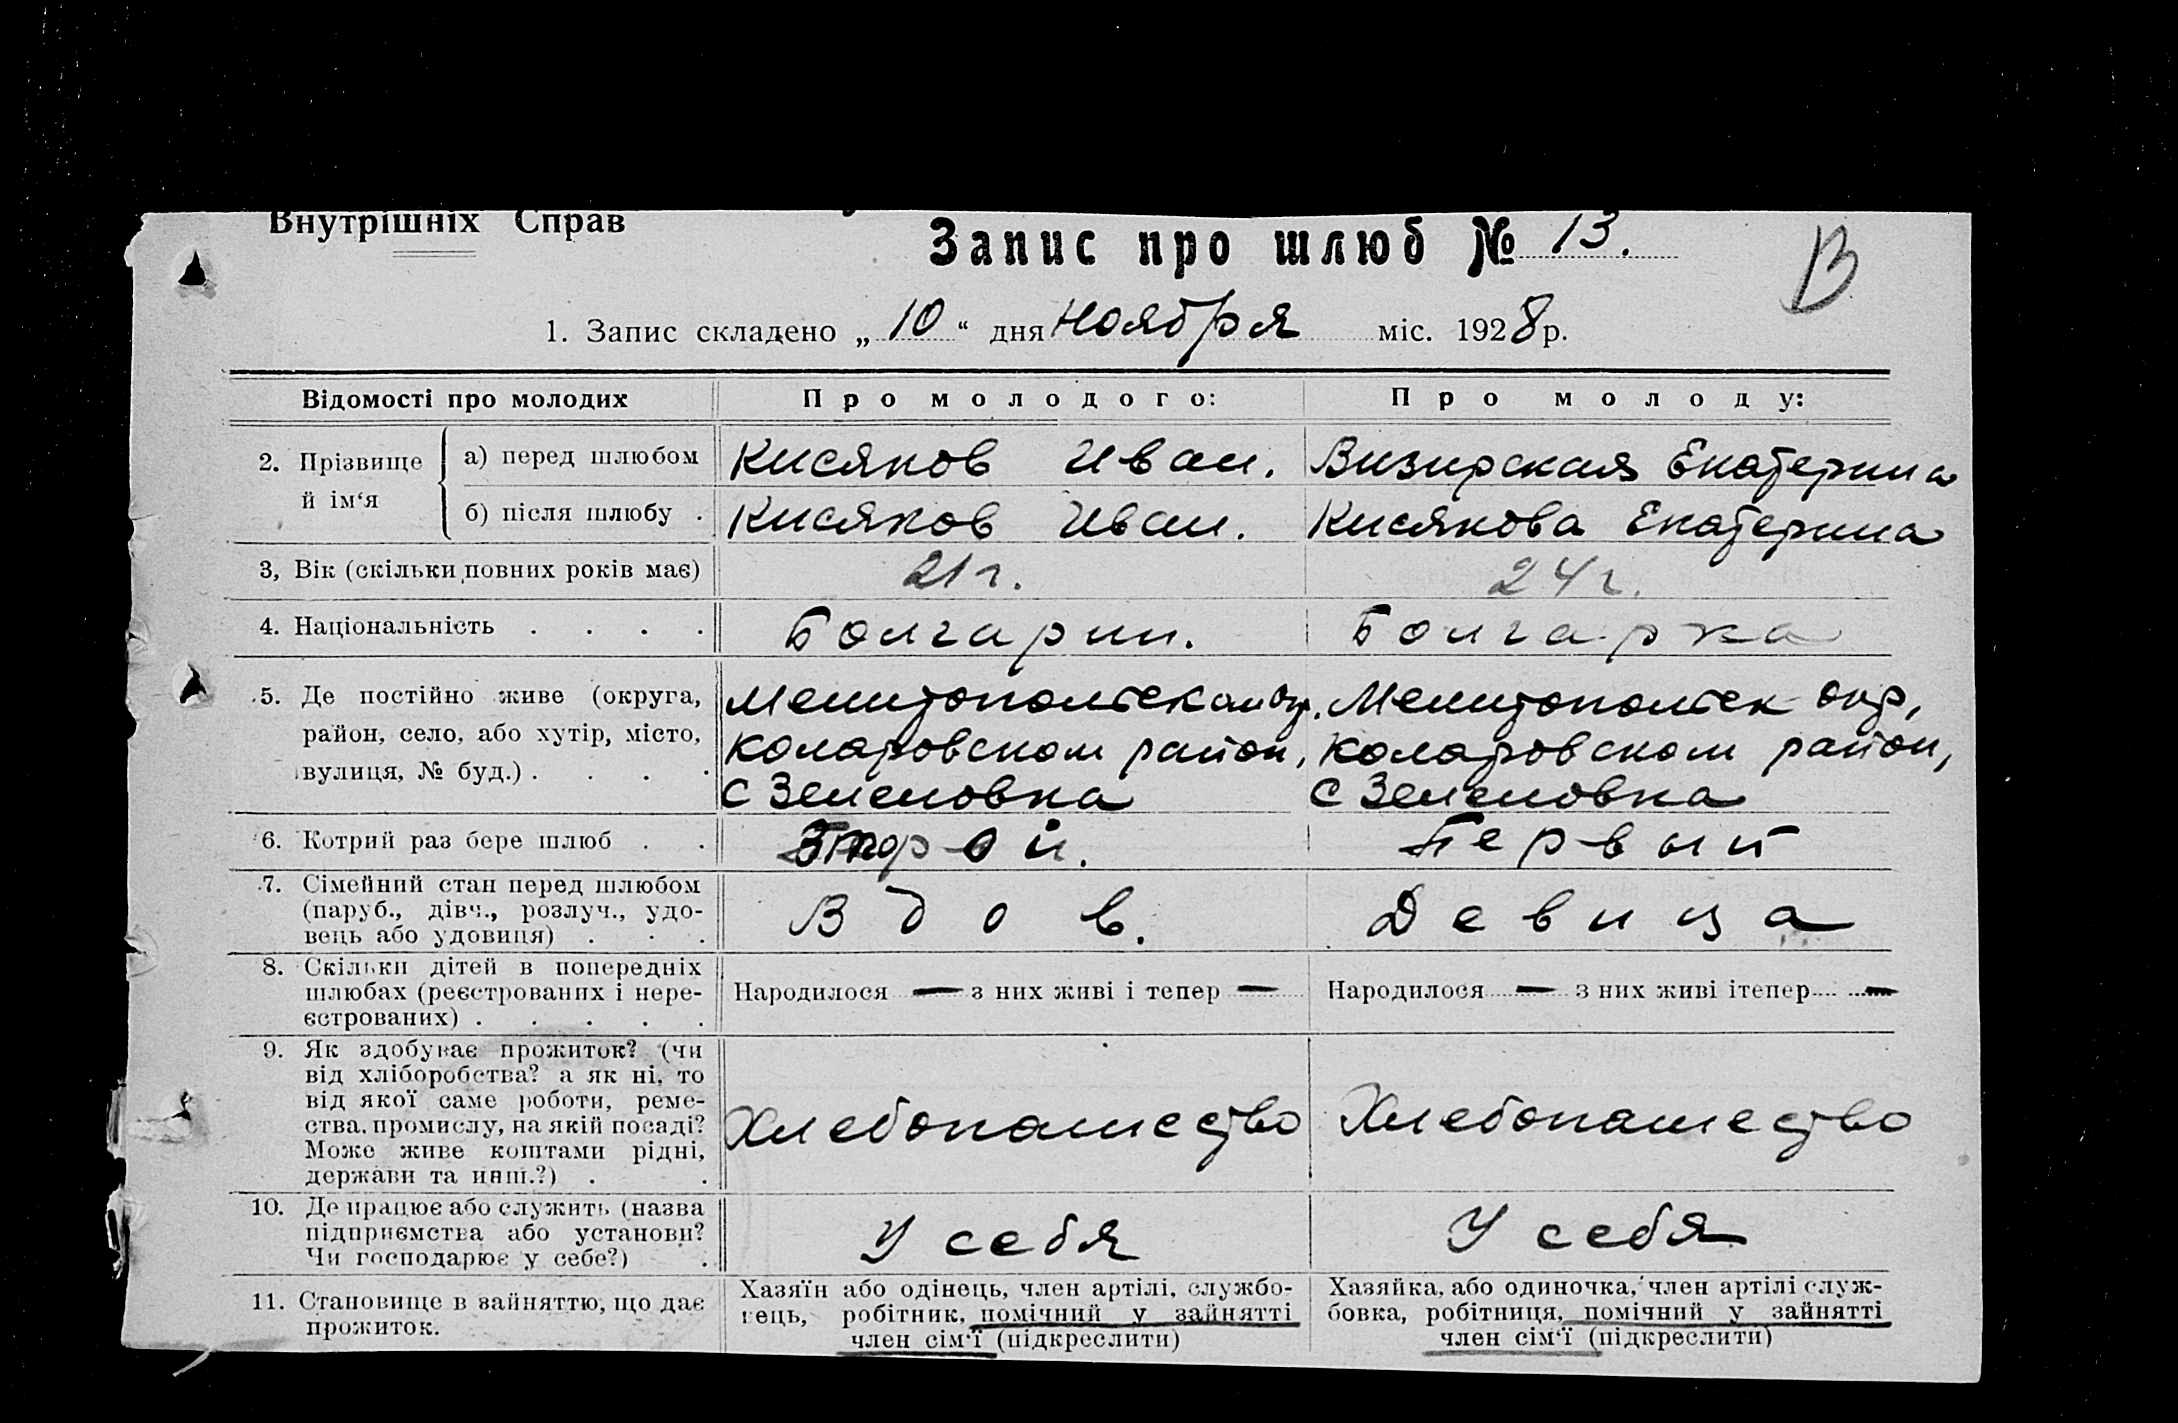 Внутрішніх Справ
Запис про шлюб № 13.
В
1. Запис складено „ 10 “ дня Ноября міс. 1928 р.
Відомості про молодих Про молодого: Про молоду:
2. Прізвище й ім‘я
а) перед шлюбом Кисяков Иван. Визирская Екатерина
б) після шлюбу . Кисяков Иван. Кисякова Екатерина
3, Вік (скільки повних років має) 21 г. 24 г.
4. Національність . . . . Болгарин. Болгарка
5. Де постійно живе (округа,
район, село, або хутір, місто,
вулиця, № буд.) . . . .
Мелитопольскам окр.
Коларовском район,
с Зеленовка
Мелитопольск окр,
Коларовском район,
с Зеленовка
6. Котрий раз бере шлюб . . Второй. Первый
7. Сімейний стан перед шлюбом
(паруб., дівч., розлуч., удо-
вець або удовиця) . . .
Вдов.
Девица
8. Скільки дітей в попередніх
шлюбах (реєстрованих і нере-
єстрованих) . . . . .
Народилося — з них живі і тепер —
Народилося — з них живі ітепер —
9. Як здобуває прожиток? (чи
від хліборобства? а як ні, то
від якої саме роботи, реме-
ства, промислу, на якій посаді?
Може живе коштами рідні,
держави та инш.?) . .
Хлебопашество
Хлебопашество
10. Де працює або служить (назва
підприємства або установи?
Чи господарює у себе?) .
У себя
У себя
11. Становище в зайняттю, що дає
прожиток.
Хазяїн або одінець, член артілі, службо-
вець, робітник, помічний у зайнятті
член сім‘ї (підкреслити)
Хазяйка, або одиночка, член артілі служ-
бовка, робітниця, помічний у зайнятті
член сім‘ї (підкреслити)